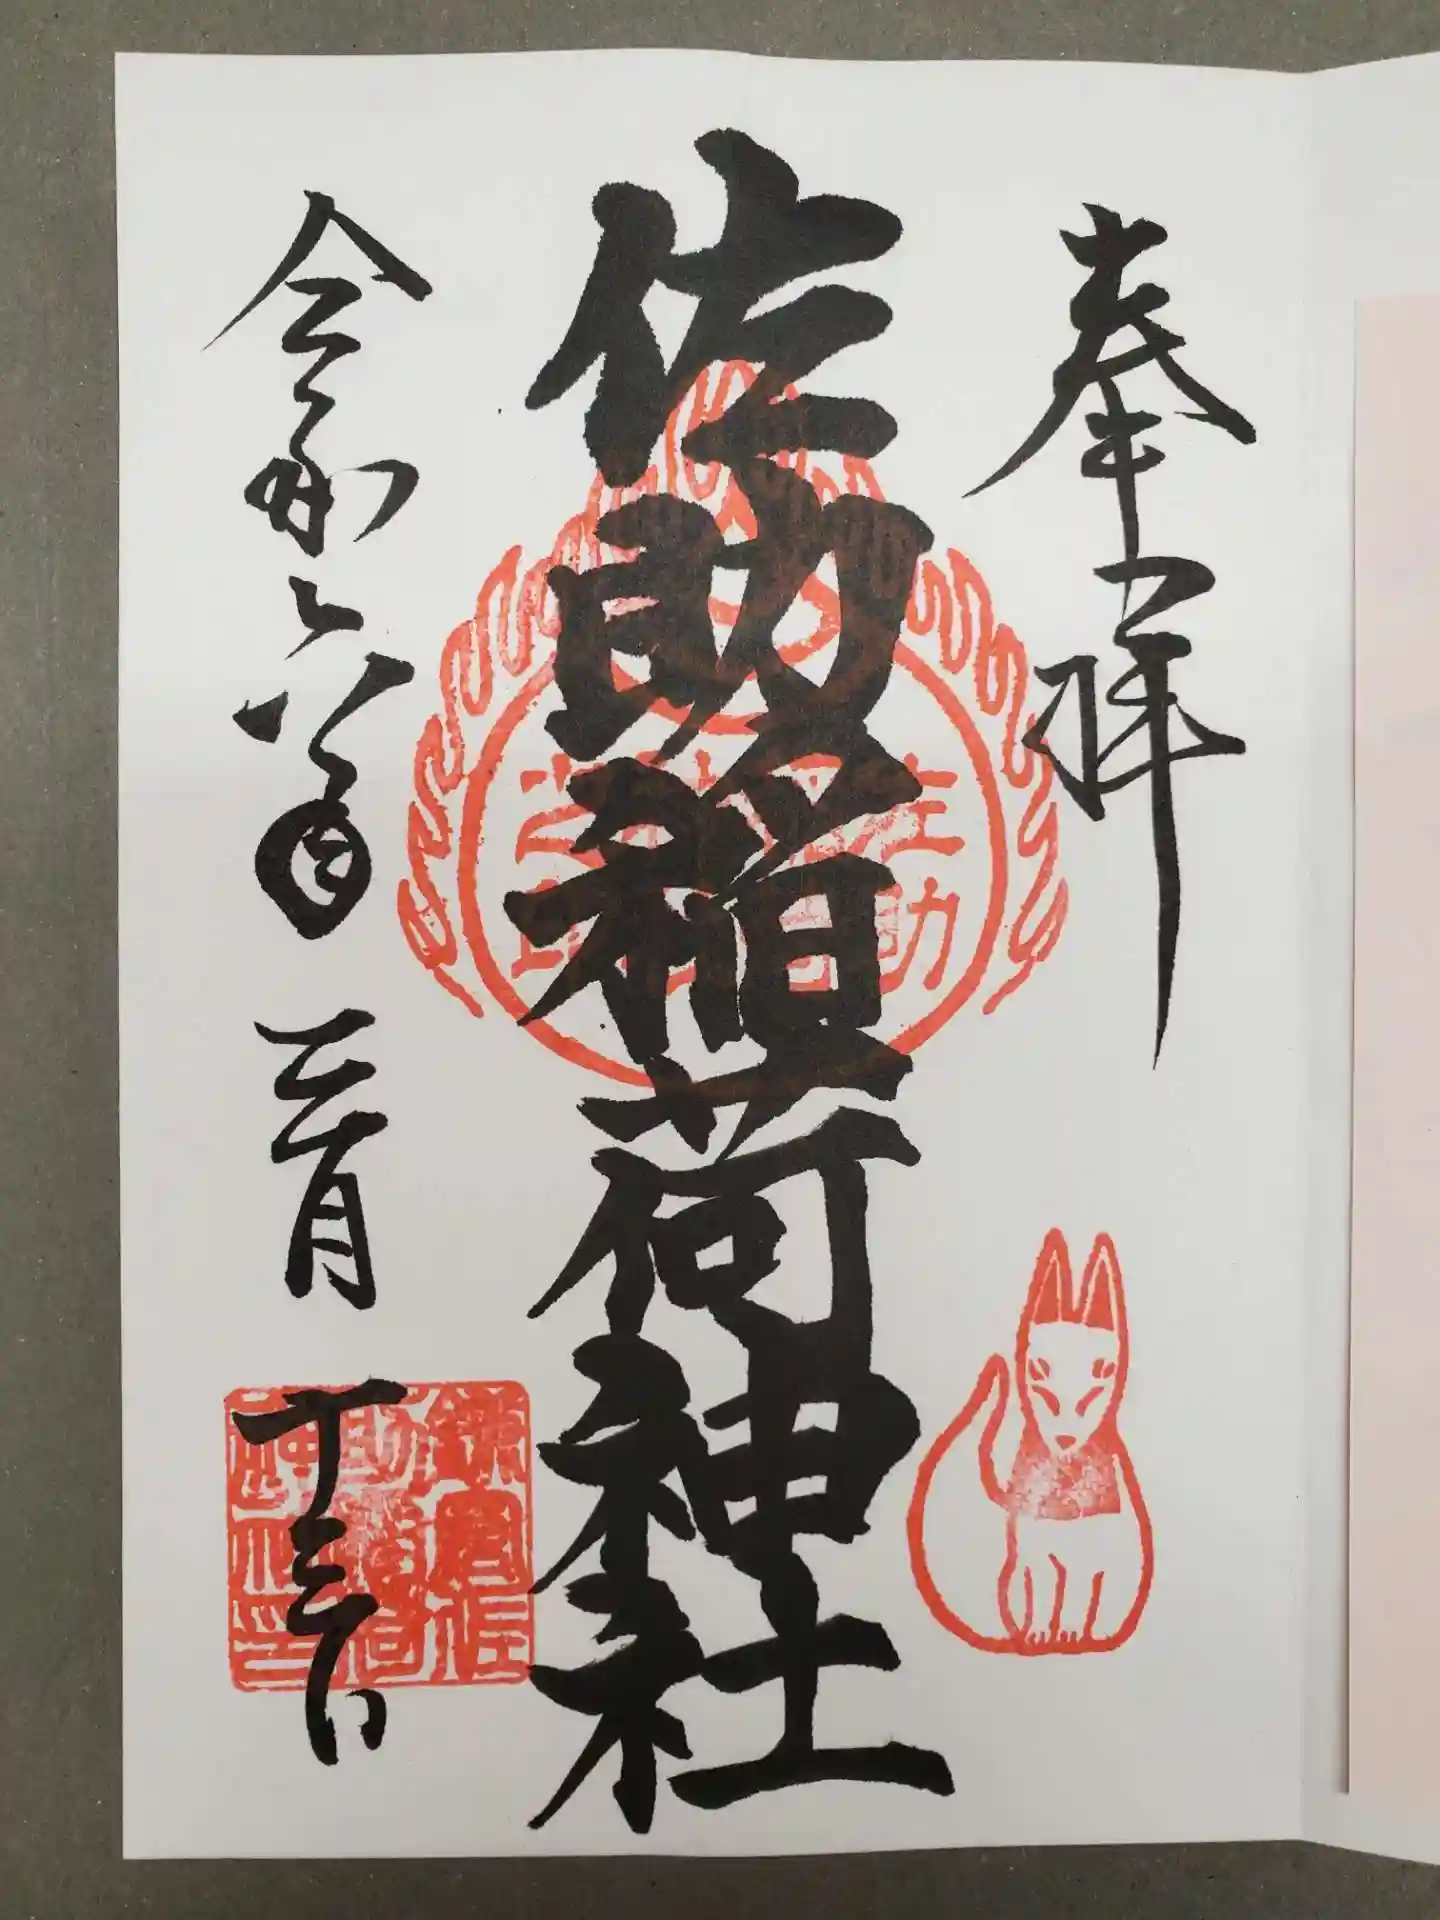 奉拝
佐助稲荷神社
令和六年三月十三日
鎌倉佐
助稲荷
神社印